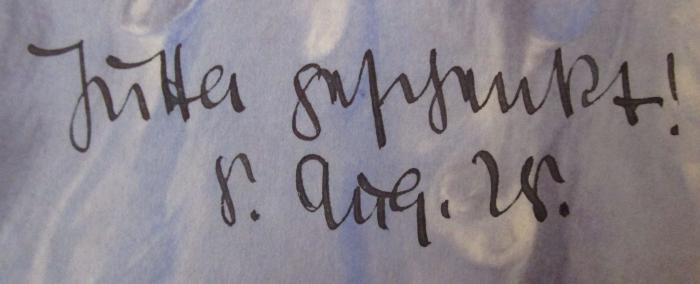 Jutta geschenkt!
8. Aug. 28.